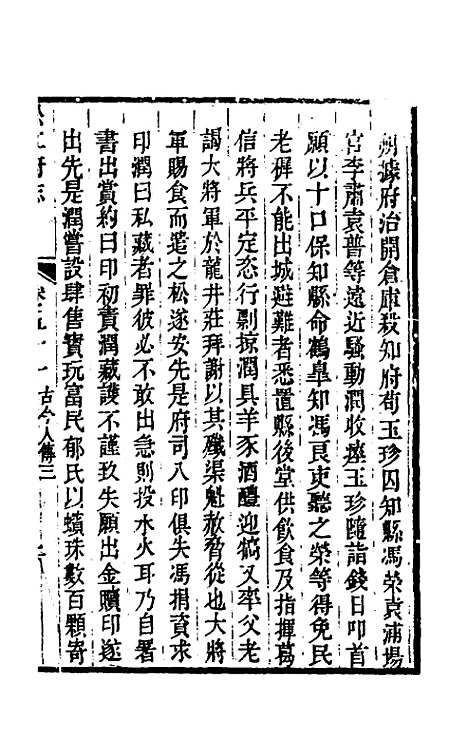 州據府治開倉庫殺知府荀玉珍囚知縣馮榮袁浦場
官李肅袁普等遠近騷動潤收瘞玉珍隨詣錢日叩首
願以十口保知縣命鶴臯知馮良吏聽之榮等得免民
老穉不能出城避難者悉置縣後堂供飲食及指揮葛
信將兵平定恣行剽掠潤具羊豕酒醴迎犒又率父老
謁大將軍於龍井莊拜謝以其殲渠魁赦脅從也大將
軍賜食而遣之松遂安先是府司八印俱失馮捐資求
印潤曰私藏者罪彼必不敢出急則投水火耳乃自署
書出賞約曰印初責潤藏護不謹致失願出金贖印遂
出先是潤嘗設肆售寶玩富民郁氏以蠙珠數百顆寄
江府志
卷五十一
古今人傳三